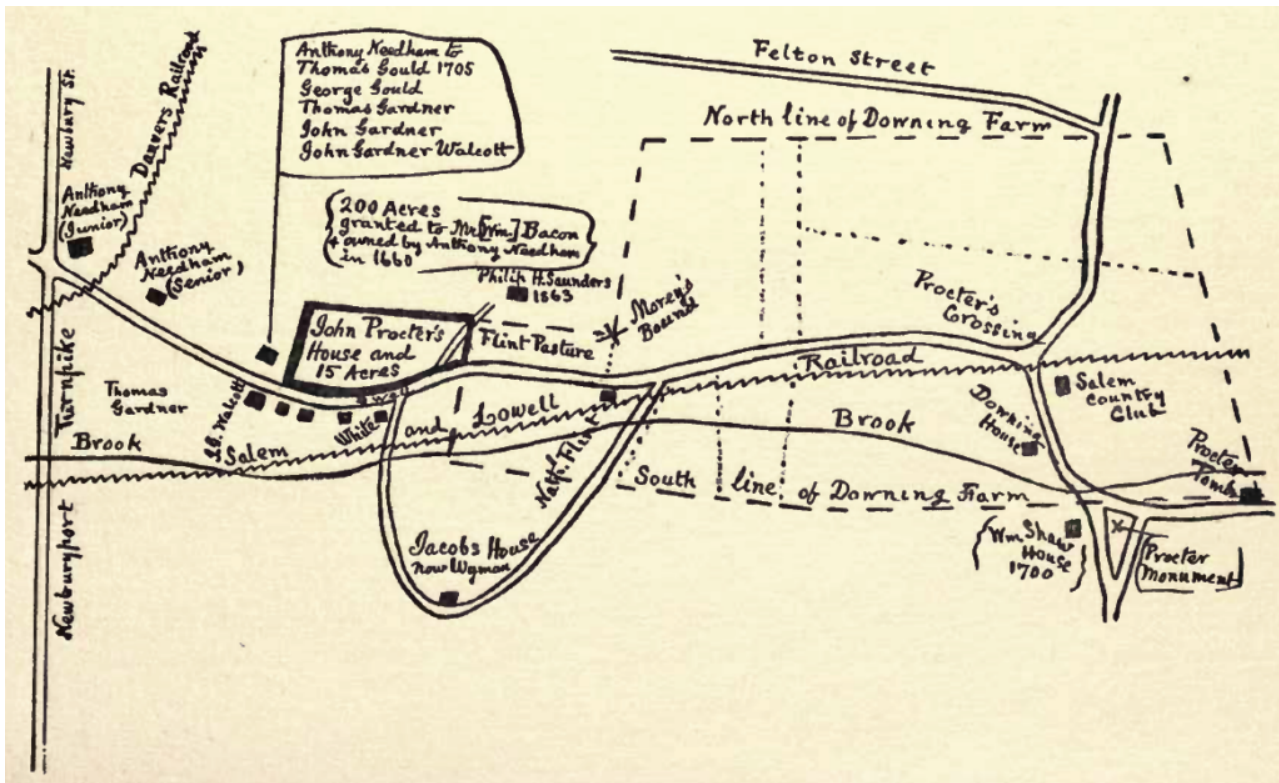 Newbury St.
Danvers Railroad
Anthony Needham to
Thomas Gould 1705
George Gould
Thomas Gardner
John Gardner
John Gardner Walcott
Felton Street
North line of Downing Farm
Anthony
Needham
(Junior)
Anthony
Needham
(Senior)
200 Acres
granted to Mr. [Wm.] Bacon
+ owned by Anthony Needham
in 1660
Philip H. Saunders
1863
Morey's
Bound
John Procter's
House and
15 Acres
Flint Pasture
Procter's
Crossing
Railroad
Thomas
Gardner
Walcott
Well
White
Salem
and
Lowell
Brook
Brook
Nath. Flint
Downing
House
Salem
Country
Club
Procter
Tomb
South line of Downing Farm
Jacobs House
now Wyman
(Wm Shaw
House
1700)
Procter
Monument
Turnpike
Newburyport